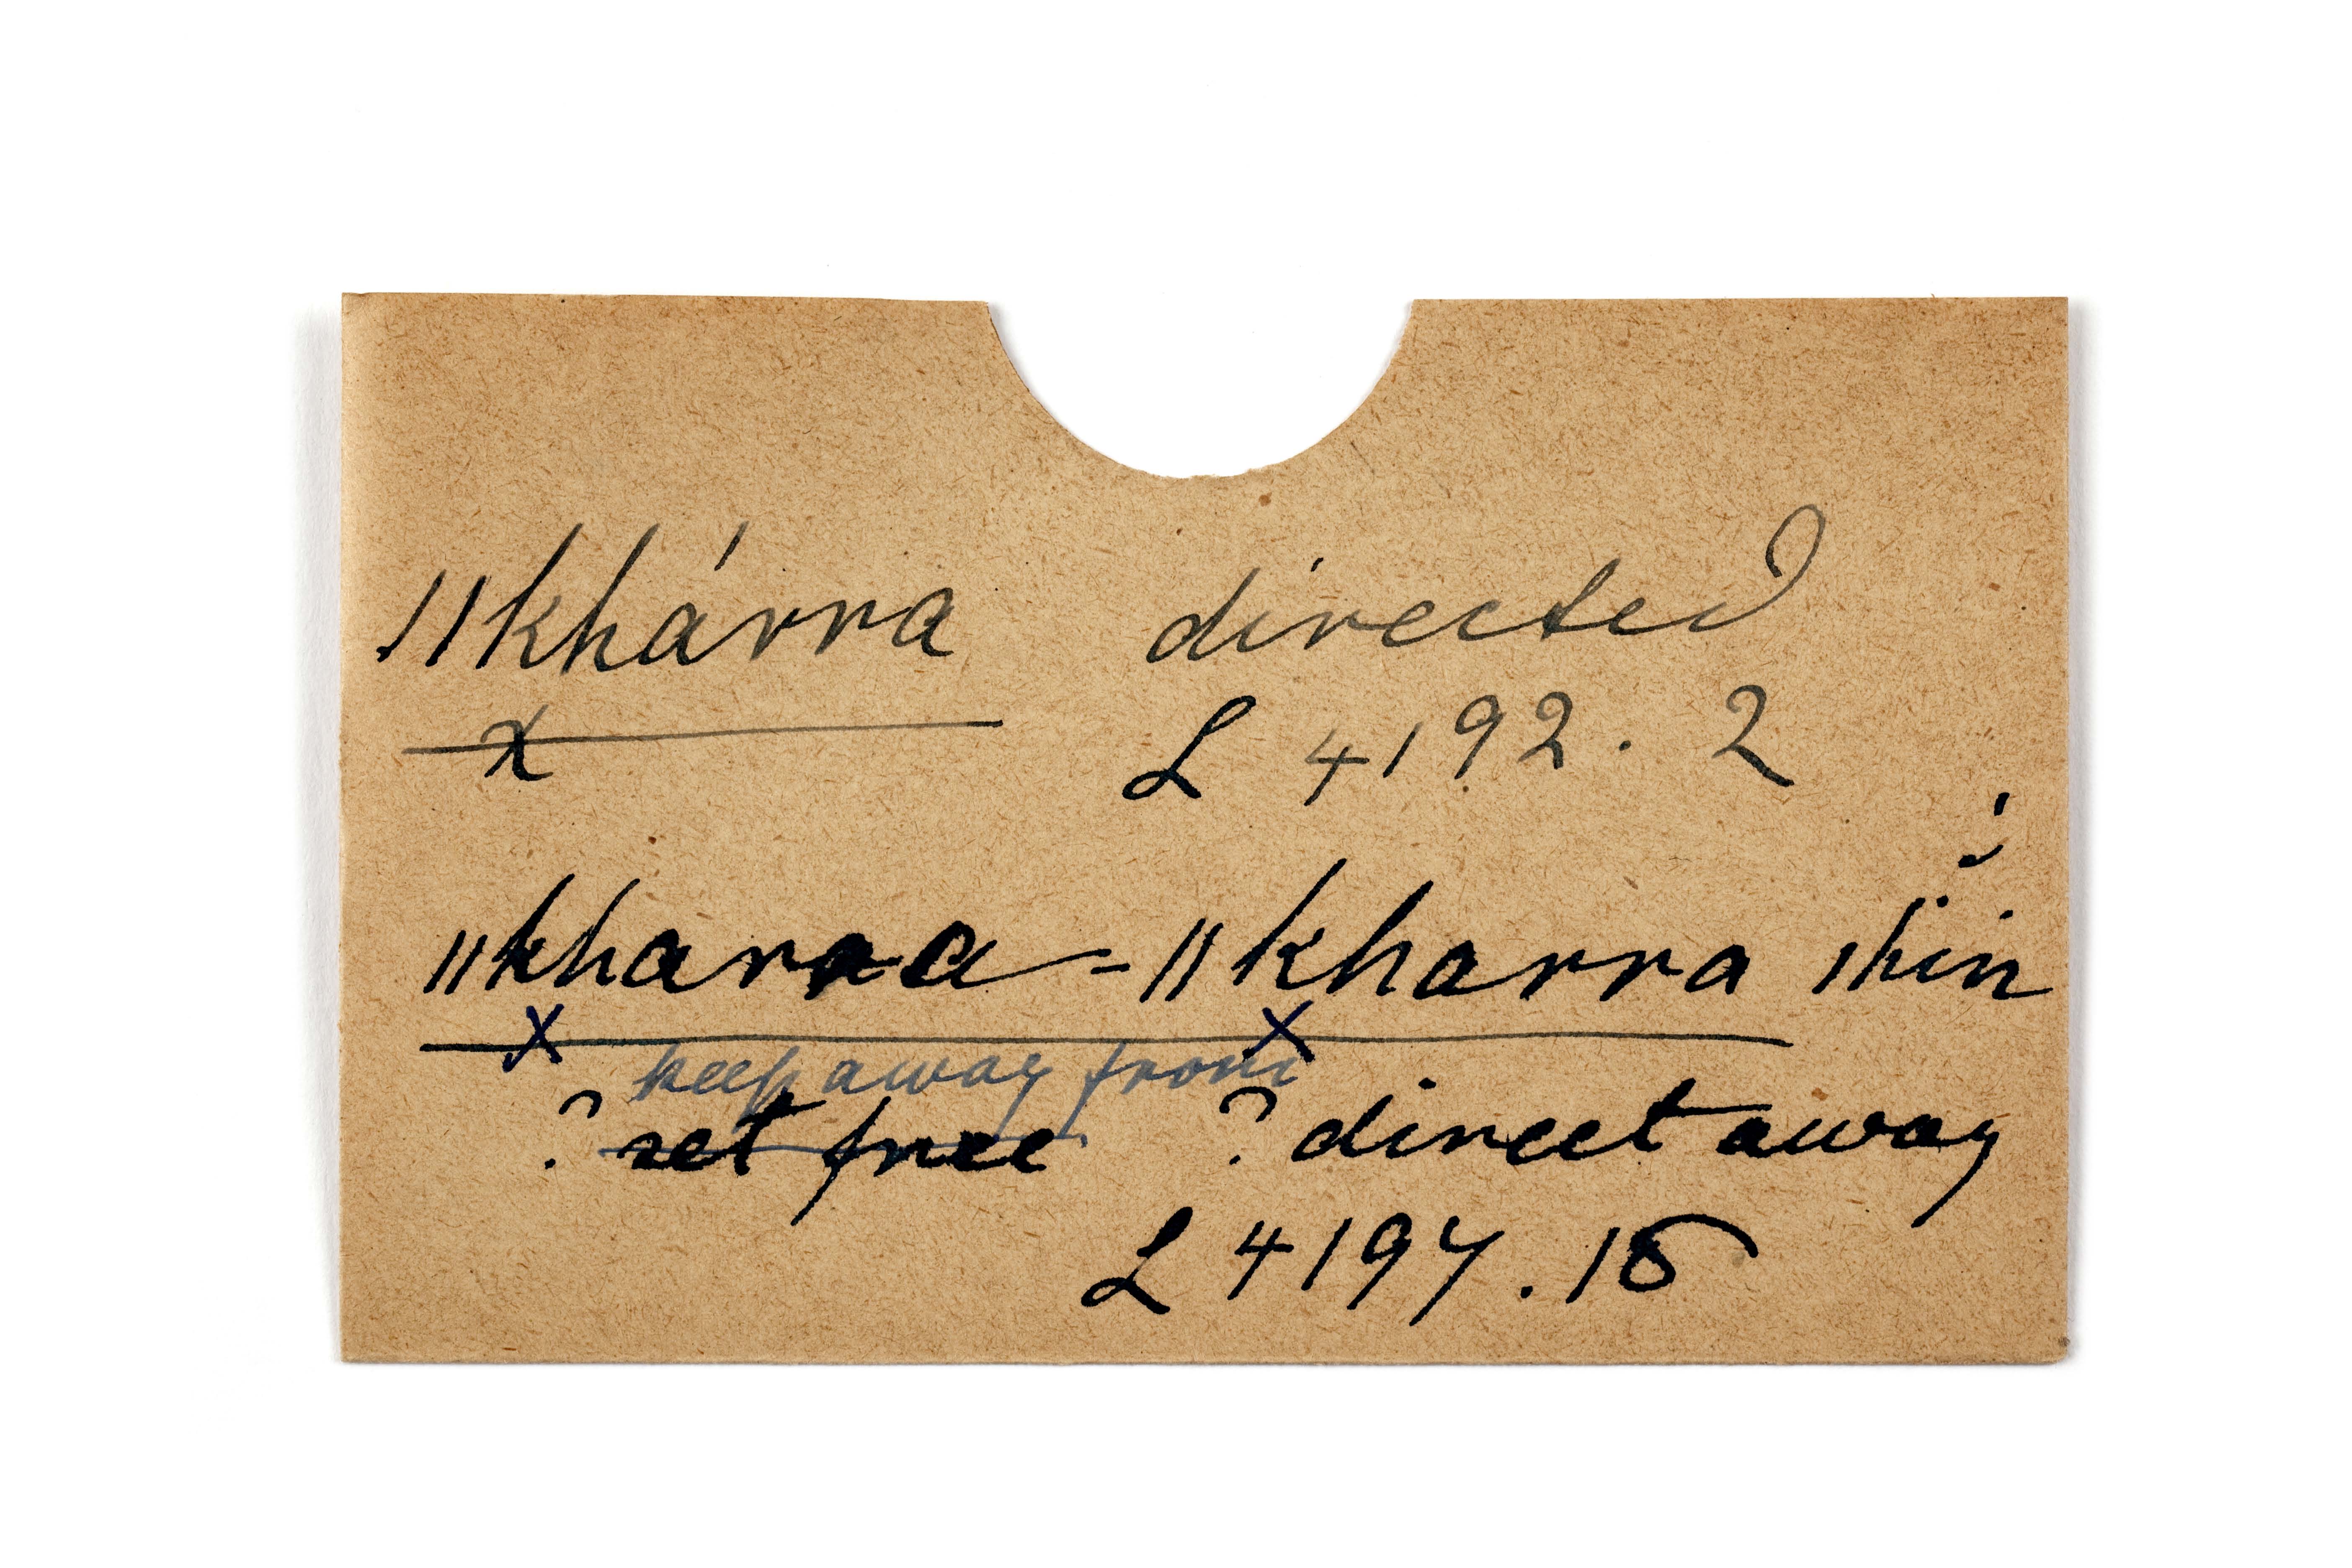 ǁkhárra directed
x
L 4192.2
ǁkharra-ǁkharra ǀhin
x x
keep away from
? set free ? direct away
L 4197.18